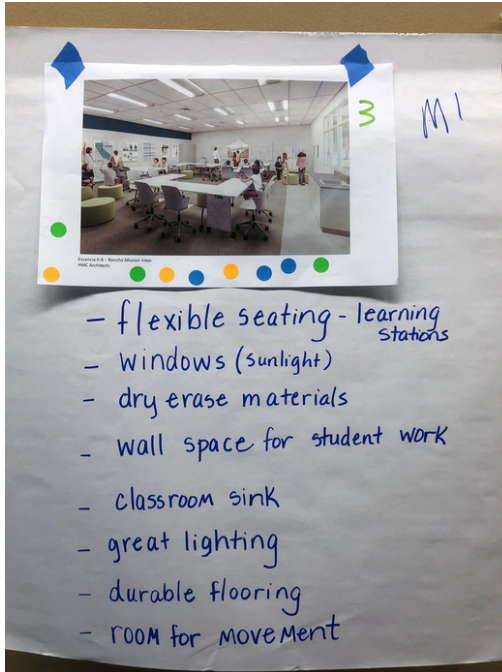 3
M1
Escencia K-8 – Rancho Mission Viejo
HMC Architects
- flexible seating - learning
stations
- windows (sunlight)
- dry erase materials
- wall space for student work
- classroom sink
- great lighting
- durable flooring
- room for movement